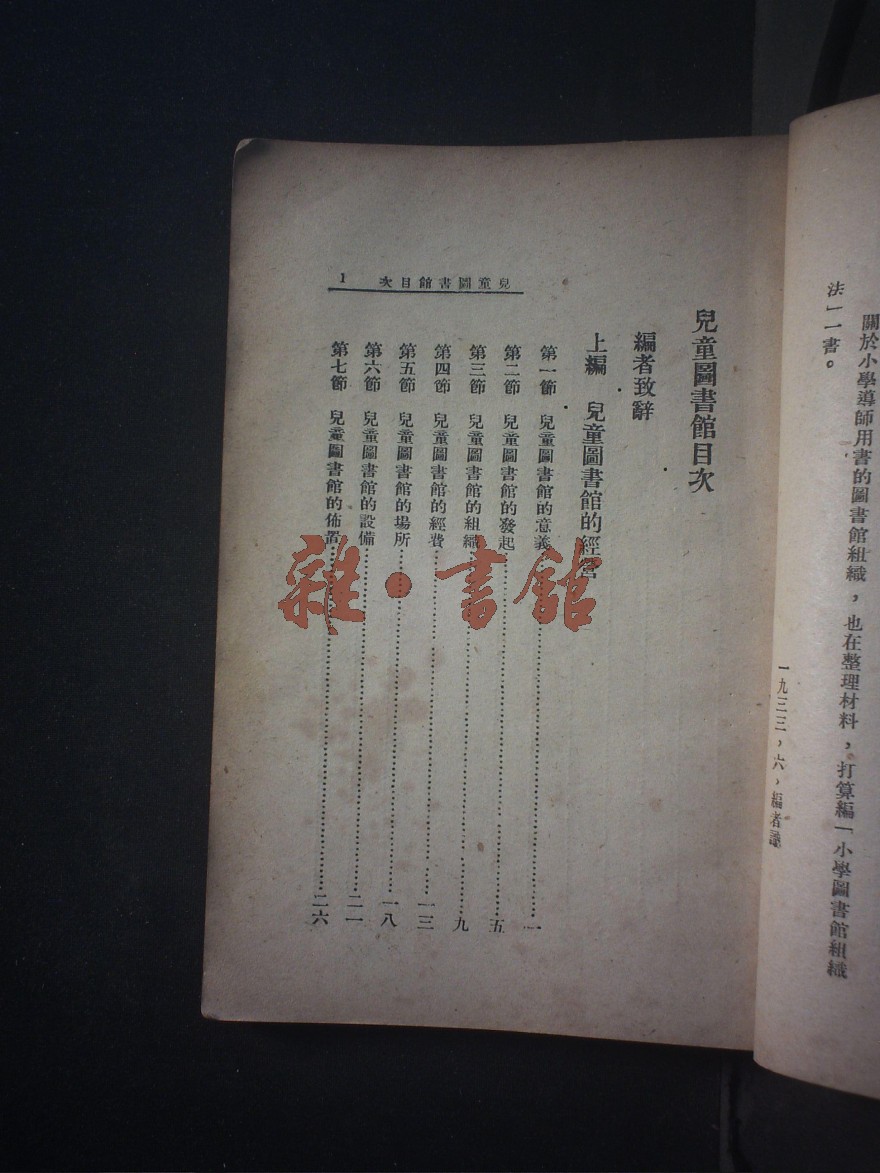 關於小學導師用書的圖書館組織，也在整理材料，打算編一小學圖書館組織
法一一書。
一九三三，六，編者識
兒童圖書館目次
1
兒童圖書館目次
編者致辭
上編 兒童圖書館的經營
第一節 兒童圖書館的意義 一
第二節 兒童圖書館的發起 五
第三節 兒童圖書館的組織 九
第四節 兒童圖書館的經費 一三
第五節 兒童圖書館的場所 一八
第六節 兒童圖書館的設備 二一
第七節 兒童圖書館的佈置 二六
雜·書館